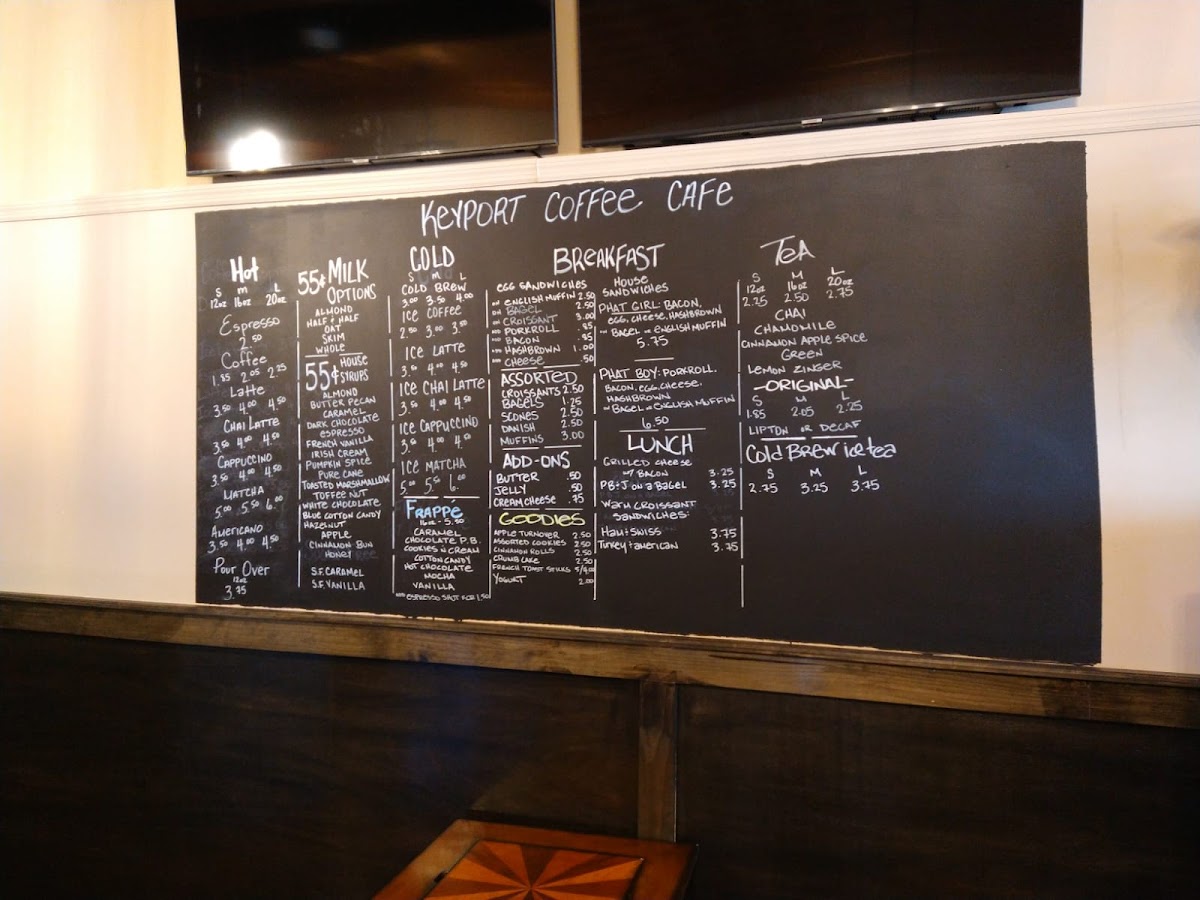 KEYPORT COFFEE CAFE
Hot
S M L
12oz 16oz 20oz
Espresso
2.50
Coffee
1.85 2.05 2.25
Latte
3.50 4.00 4.50
CHAI LATTE
3.50 4.00 4.50
CAPPUCCINO
3.50 4.00 4.50
MATCHA
5.00 5.50 6.00
AMERICANO
3.50 4.00 4.50
POUR OVER
12oz
3.75
55¢ MILK
OPTIONS
ALMOND
HALF + HALF
OAT
SKIM
WHOLE
55¢ HOUSE
SYRUPS
ALMOND
BUTTER PECAN
CARAMEL
DARK CHOCOLATE
ESPRESSO
FRENCH VANILLA
IRISH CREAM
PUMPKIN SPICE
PURE CANE
TOASTED MARSHMALLOW
TOFFEE NUT
WHITE CHOCOLATE
BLUE COTTON CANDY
HAZELNUT
APPLE
CINNAMON BUN
HONEY
S.F. CARAMEL
S.F. VANILLA
COLD
S M L
COLD BREW
3.00 3.50 4.00
ICE COFFEE
2.50 3.00 3.50
ICE LATTE
3.50 4.00 4.50
ICE CHAI LATTE
3.50 4.00 4.50
ICE CAPPUCCINO
3.50 4.00 4.50
ICE MATCHA
5.00 5.50 6.00
FRAPPÉ
16oz - 5.50
CARAMEL
CHOCOLATE P.B.
COOKIES N CREAM
COTTON CANDY
HOT CHOCOLATE
MOCHA
VANILLA
ADD ESPRESSO SHOT FOR 1.50
BREAKFAST
EGG SANDWICHES
ON ENGLISH MUFFIN 2.50
ON BAGEL 2.50
ON CROISSANT 3.00
ADD PORKROLL .85
ADD BACON .85
ADD HASHBROWN 1.00
ADD CHEESE .50
ASSORTED
CROISSANTS 2.50
BAGELS 1.25
SCONES 2.50
DANISH 2.50
MUFFINS 3.00
ADD-ONS
BUTTER .50
JELLY .50
CREAM CHEESE .75
GOODIES
APPLE TURNOVER 2.50
ASSORTED COOKIES 2.50
CINNAMON ROLLS 2.50
CRUMB CAKE 2.50
FRENCH TOAST STICKS 5/4.00
YOGURT 2.00
HOUSE
SANDWICHES
PHAT GIRL: BACON,
EGG, CHEESE, HASHBROWN
ON BAGEL or ENGLISH MUFFIN
5.75
PHAT BOY: PORKROLL,
BACON, EGG, CHEESE,
HASHBROWN
ON BAGEL or ENGLISH MUFFIN
6.50
LUNCH
GRILLED CHEESE
W/ BACON 3.25
PB+J ON A BAGEL 3.25
WARM CROISSANT
SANDWICHES:
HAM + SWISS 3.75
TURKEY + AMERICAN 3.75
TEA
S M L
12oz 16oz 20oz
2.25 2.50 2.75
CHAI
CHAMOMILE
CINNAMON APPLE SPICE
GREEN
LEMON ZINGER
-ORIGINAL-
S M L
1.85 2.05 2.25
LIPTON OR DECAF
Cold BREW ice tea
S M L
2.75 3.25 3.75